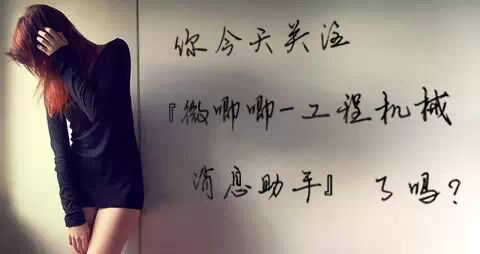 你今天关注
『微唧唧-工程机械
消息助手』了吗?